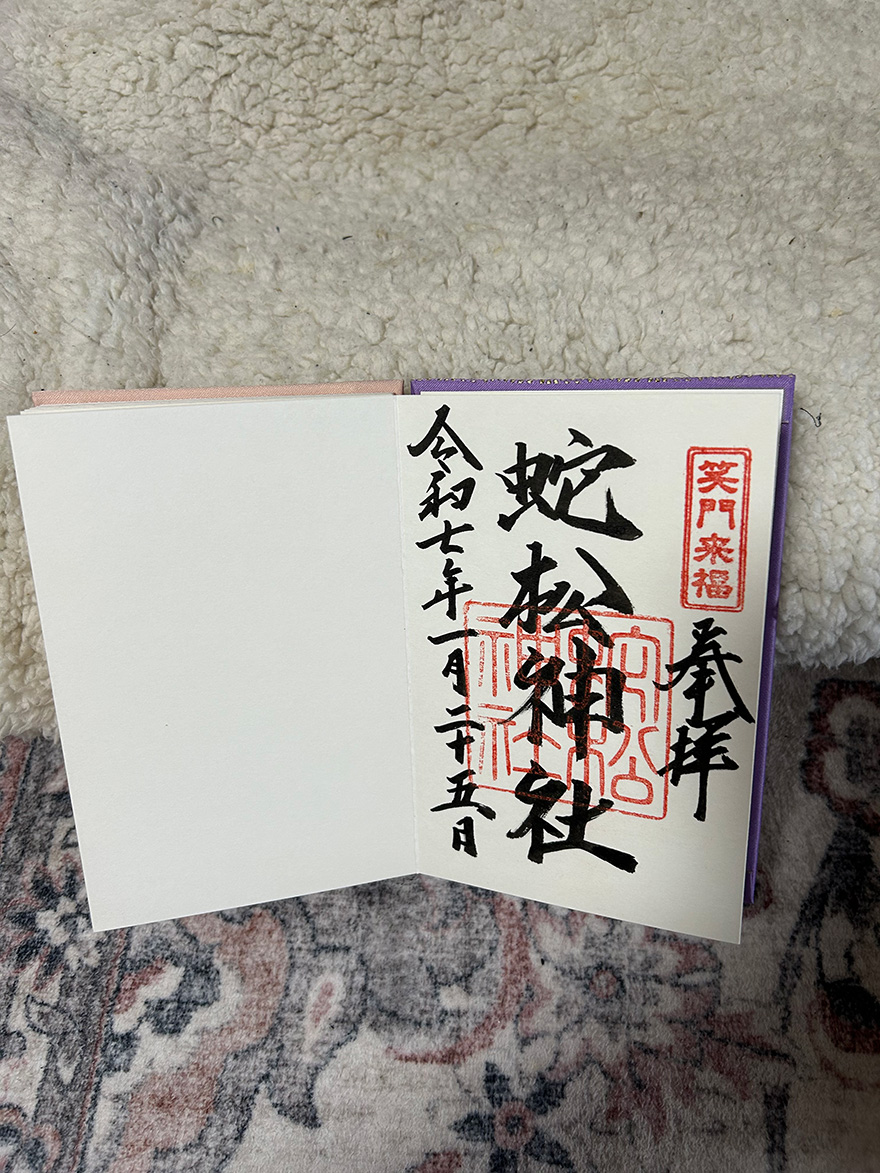 笑門来福
奉拝
蛇松神社
令和七年一月二十五日